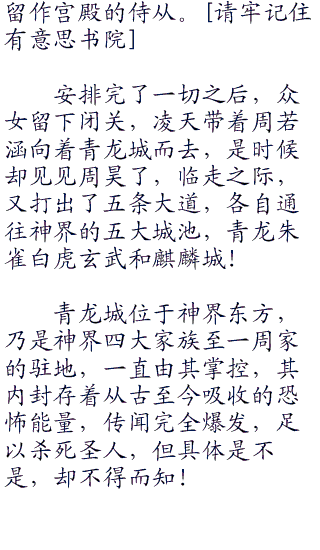 留作宫殿的侍从。[请牢记住
有意思书院]
安排完了一切之后，众
女留下闭关，凌天带着周若
涵向着青龙城而去，是时候
却见见周昊了，临走之际，
又打出了五条大道，各自通
往神界的五大城池，青龙朱
雀白虎玄武和麒麟城！
青龙城位于神界东方，
乃是神界四大家族至一周家
的驻地，一直由其掌控，其
内封存着从古至今吸收的恐
怖能量，传闻完全爆发，足
以杀死圣人，但具体是不
是，却不得而知！